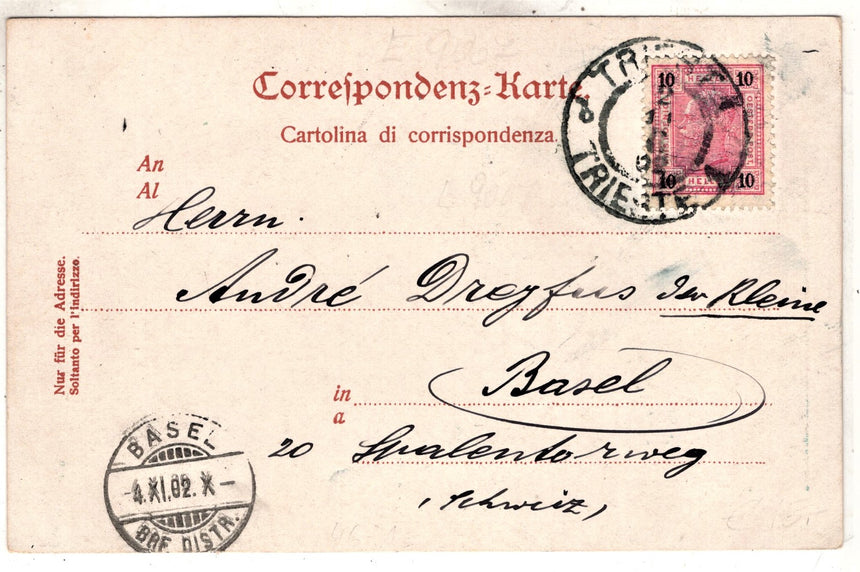 Correspondenz-Karte.
Cartolina di corrispondenza.
10 10
10 10
TRIEST 1
TRIESTE 1
An
Al
Herrn.
André Dreyfus der Kleine
in
a
Basel
20 Spalentorweg
(Schweiz)
Nur für die Adresse.
Soltanto per l'indirizzo.
BASEL
4.XI.02.X-
BRF. DISTR.